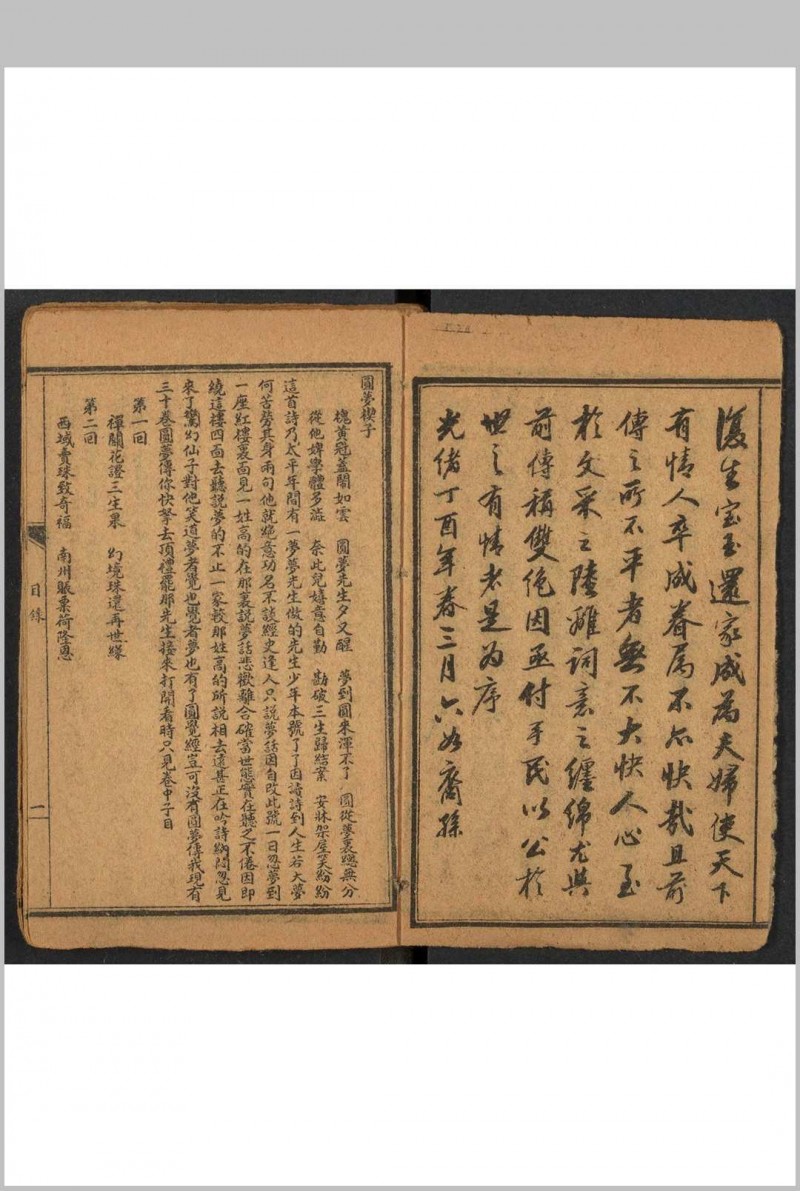 復生寶玉還家成為夫婦使天下
有情人卒成眷屬不亦快哉且前
傳之所不平者無不大快人心至
於文采之陸離詞意之纏綿尤與
前傳稱雙絕因亟付手民以公於
世之有情者是為序
光緒丁酉年春三月六如裔孫
圓夢楔子
槐黃冠蓋鬧如雲　圓夢先生夕又醒　夢到圓來渾不了　圓從夢裏總無分
從他婢學體多澁　奈此兒嬉意自勤　勘破三生歸結案　安牀架屋笑紛紛
這首詩乃太平年間有一夢夢先生做的先生少年本號了了因讀詩到人生若大夢
何苦勞其身兩句他就絕意功名不談經史逢人只說夢話因自改此號一日忽夢到
一座紅樓裏面見一姓高的在那裏說夢話悲歡離合確當世態實在聽之不倦因即
繞這樓四面去聽說夢的不止一家較那姓高的所說相去遠甚正在吟詩納悶忽見
來了驚幻仙子對他笑道夢者覺也覺者夢也有了圓覺經豈可沒有圓夢傳我現有
三十卷圓夢傳你快拏去頂禮罷那先生接來打開看時只見卷中子目
第一回
禪關花證三生果　幻境珠還再世緣
第二回
西域賣珠致奇福　南州賑粟荷隆恩
目錄
二